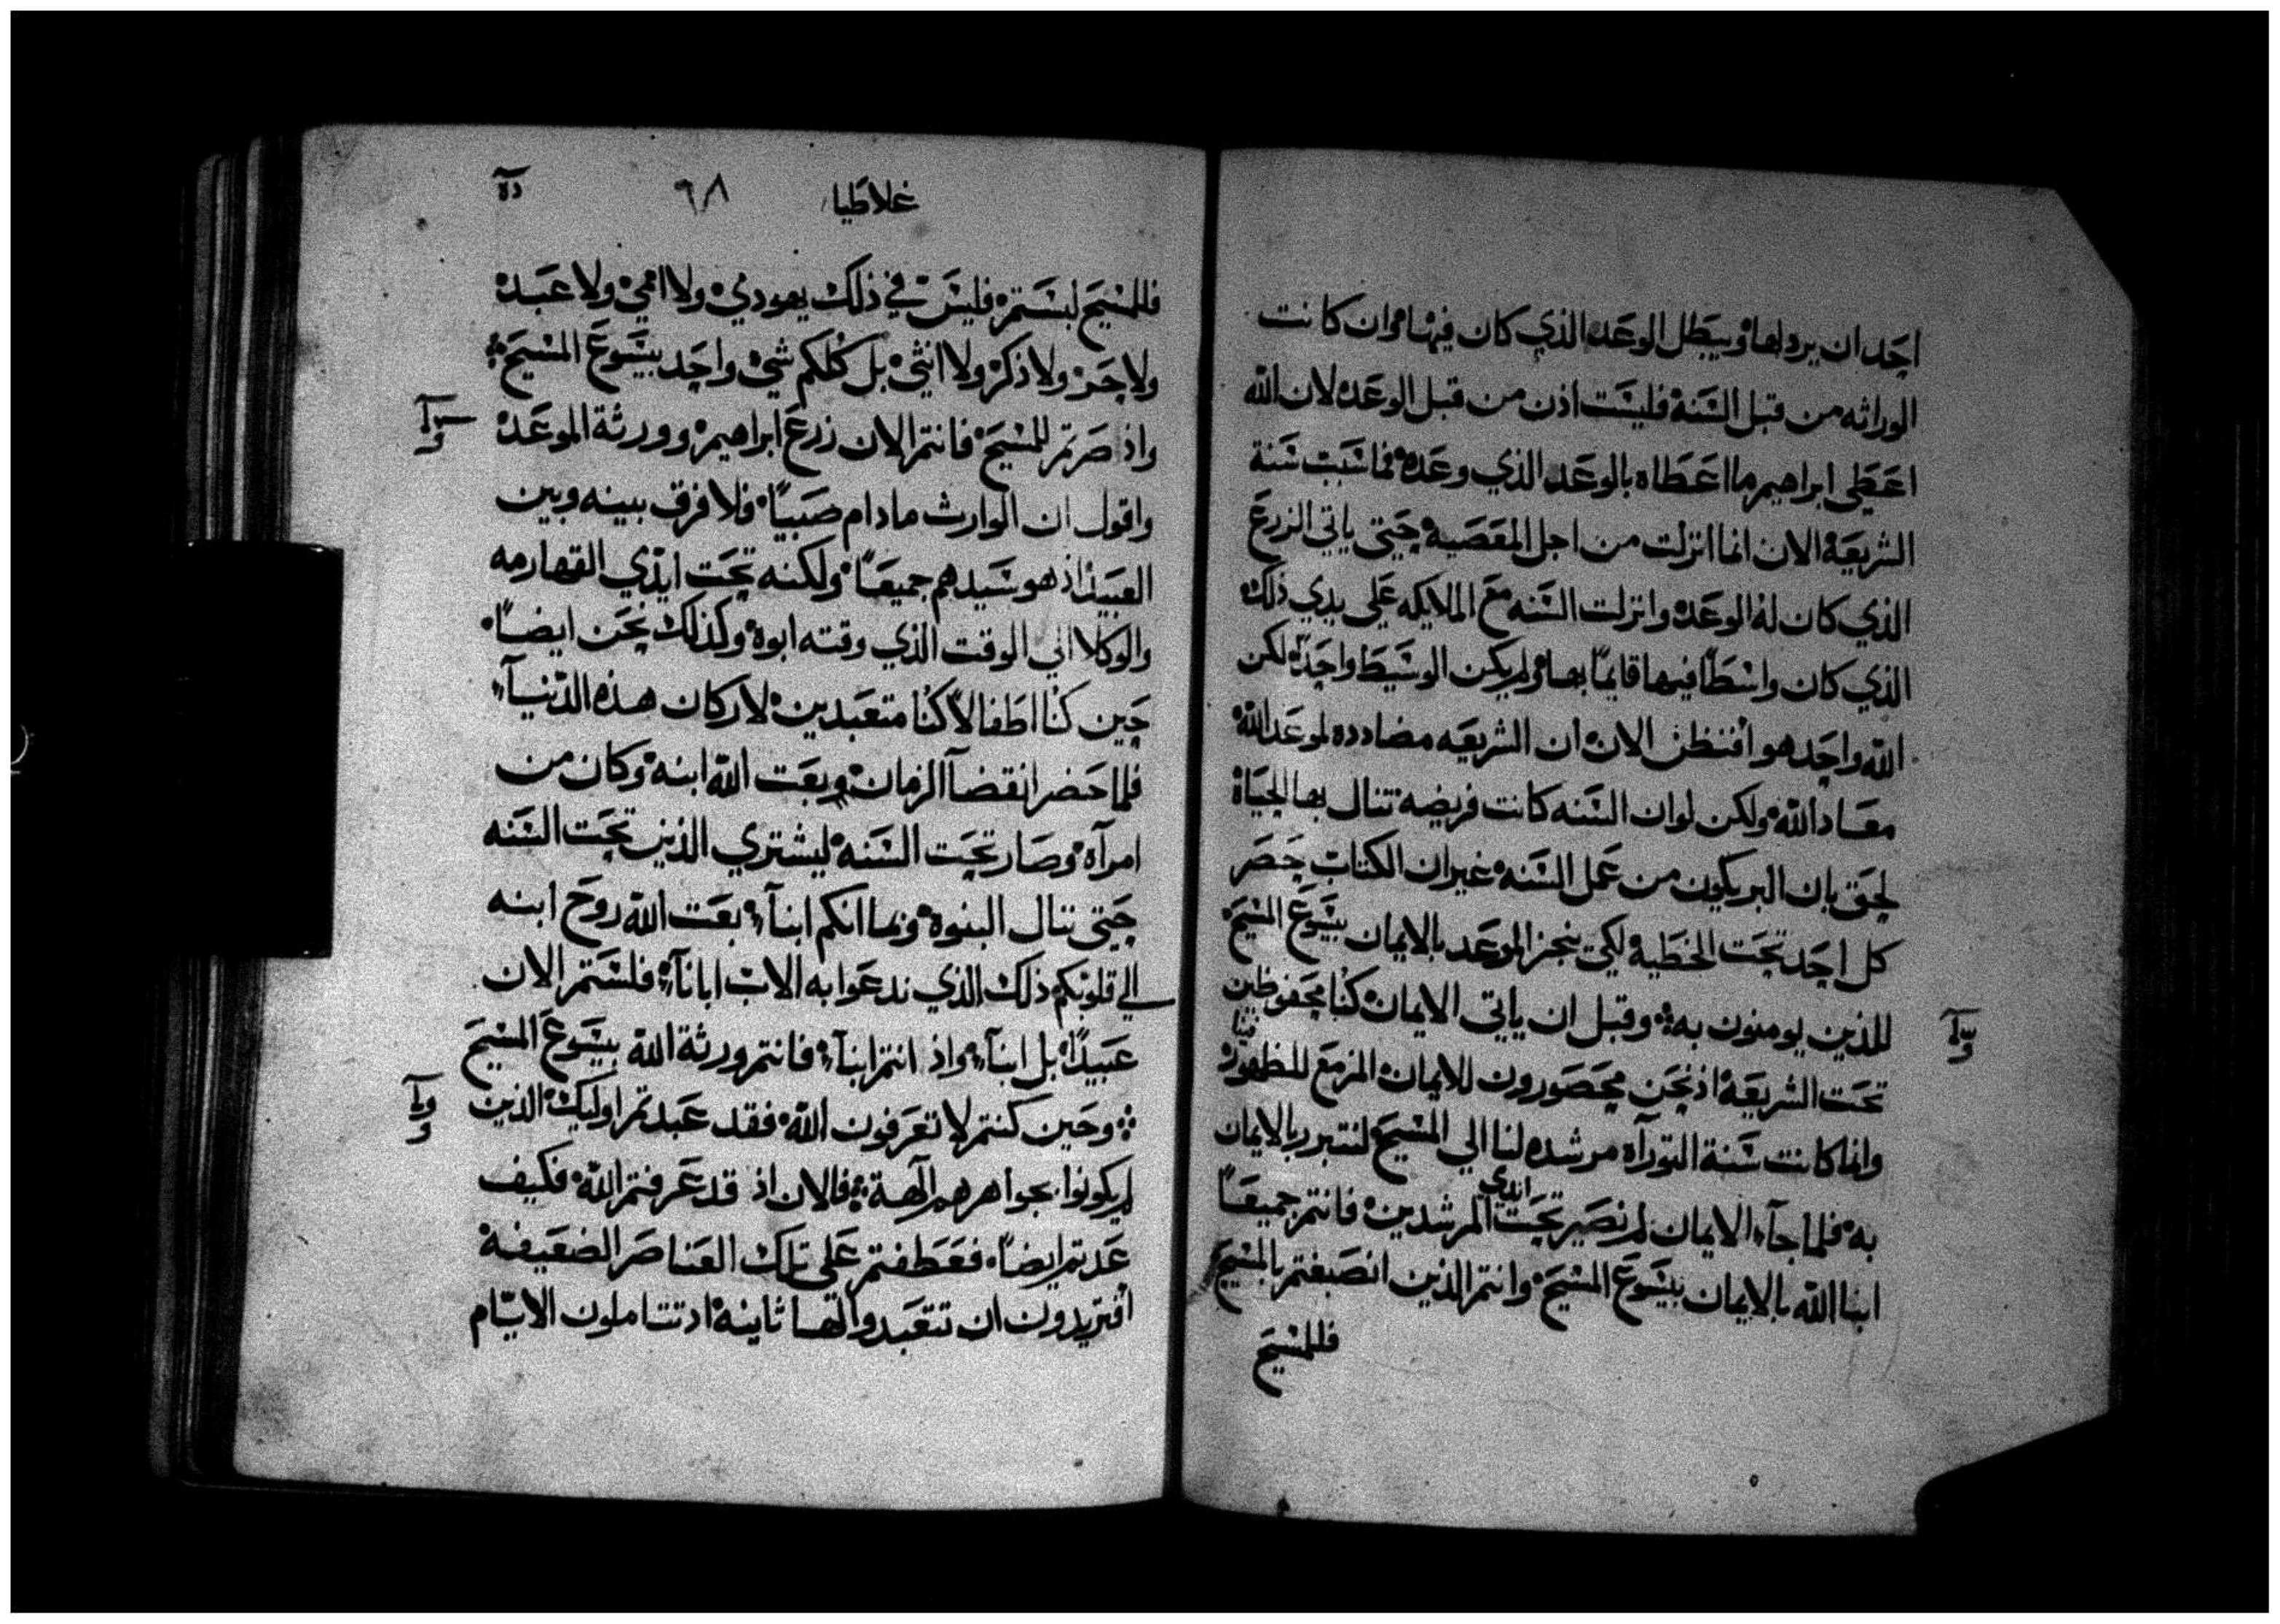 احد ان يردلها ويبطل الوعد الذي كان فيها وان كانت
الوراثه من قبل السنة فليست اذن من قبل الوعد لان الله
اعطي ابراهيم ما اعطاه بالوعد الذي وعده فما سبب سنة
الشريعة الان انما انزلت من اجل المعصية حتى ياتي الزرع
الذي كان له الوعد وانزلت السنه مع الملايكه علي يدي ذلك
الذي كان واسطا فيها قايما بها ولم يكن الوسيط واحد لكن
الله واحد هو افنظن الان ان الشريعه مضادده لموعد الله
معاد الله ولكن لو ان السنه كانت فريضه تنال بها الحياة
لحق بان البر يكون من عمل السنه غير ان الكتاب حصر
كل احد تحت الخطية لكي ينجز الموعد بالايمان بيسوع المسيح
للذين يومنون به وقبل ان ياتي الايمان كنا محفوظين
تحت الشريعة اذ نحن محصورون للايمان المزمع للظهور
وانما كانت سنة التوراه مرشده لنا الي المسيح لنتبرر بالايمان
به فلما جآء الايمان لم نصير تحت ايدي المرشدين فانتم جميعًا
ابنا الله بالايمان بيسوع المسيح وانتم الذين انصبغتم بالمسيح
فللمسيح
غلاطيا ٦٨
فللمسيح لبستم فليس في ذلك يهودي ولا اممي ولا عبد
ولا حر ولا ذكر ولا انثي بل كلكم شي واحد بيسوع المسيح
واذ صرتم للمسيح فانتم الان زرع ابراهيم وورثة الموعد
واقول ان الوارث مادام صبيًا فلا فرق بينه وبين
العبيد اذ هو سيدهم جميعًا ولكنه تحت ايدي القهارمه
والوكلا الي الوقت الذي وقته ابوه وكذلك نحن ايضًا
حين كنا اطفالا كنا متعبدين لاركان هذه الدنيآ
فلما حضر انقضآ الزمان وبعت الله ابنه وكان من
امرآة وصار تحت السنه ليشتري الذين تحت السنه
حتي تنال البنوة وبما انكم ابنآء بعت الله روح ابنه
الي قلوبكم ذلك الذي ندعوا به الاب ابانآ فلستم الان
عبيدًا بل ابنآء واذ انتم ابنآء فانتم ورثة الله بيسوع المسيح
وحين كنتم لا تعرفون الله فقد عبدتم اوليك الذين
لم يكونوا بجواهرهم آلهة فالان اذ قد عرفتم الله فكيف
عدتم ايضًا فعطفتم علي تلك العناصر الضعيفة
افتريدون ان تتعبدوا لها ثانية اذ تتاملون الايام